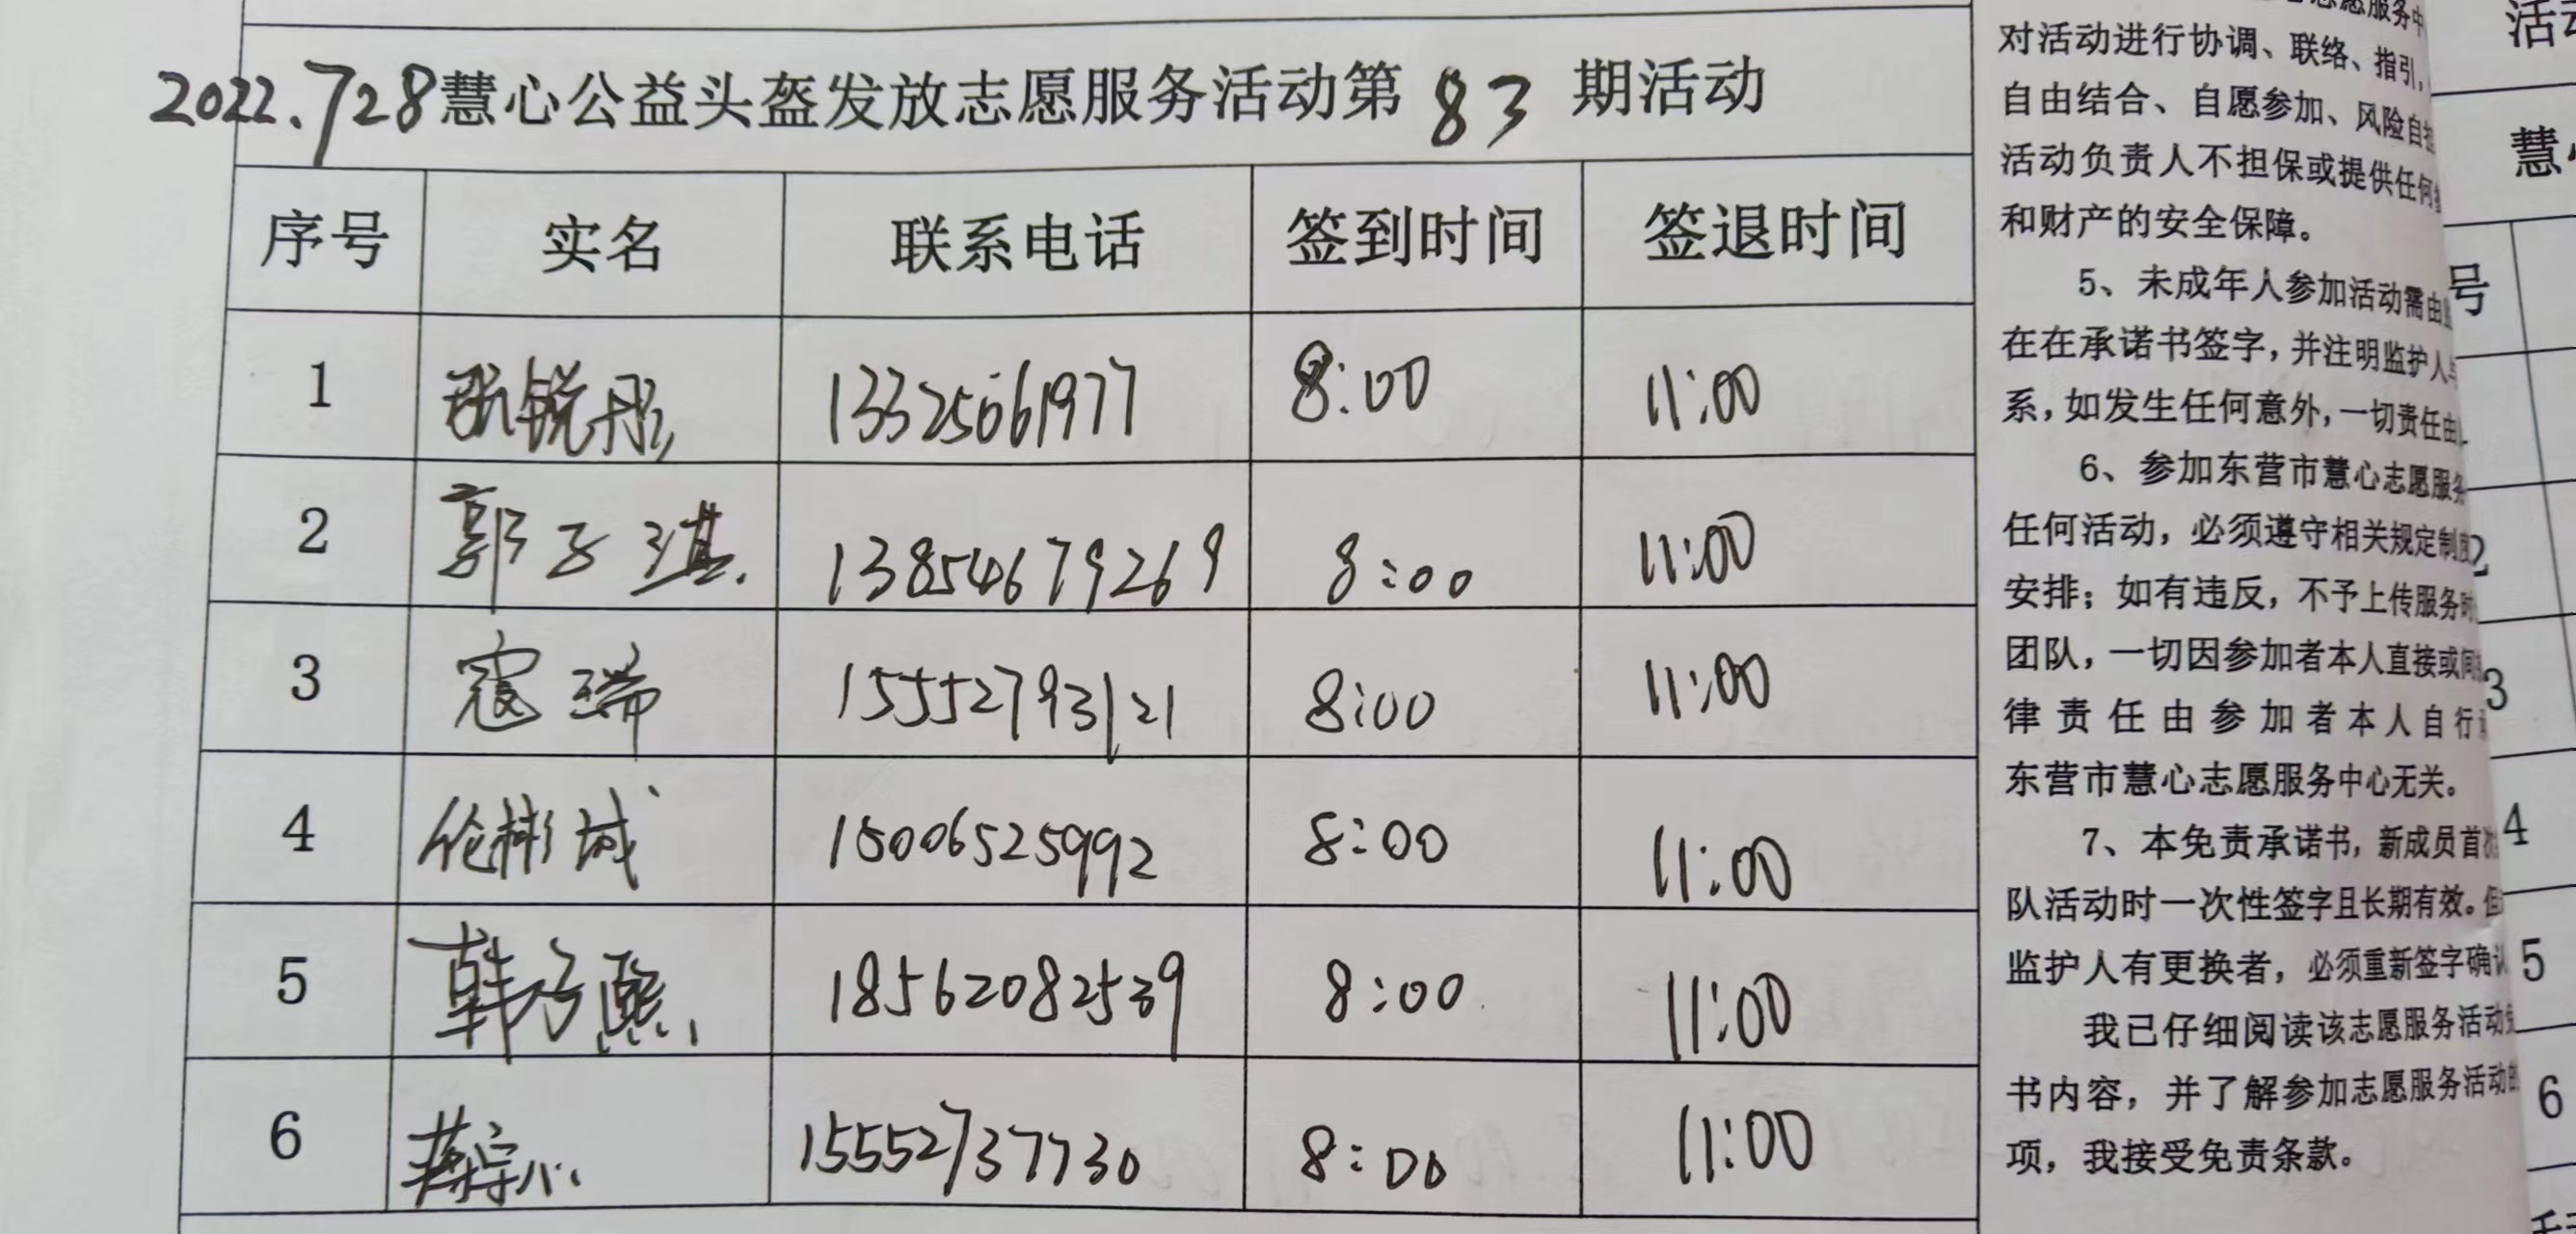 2022.728慧心公益头盔发放志愿服务活动第83期活动
序号 实名 联系电话 签到时间 签退时间
1 13325061977 8:00 11:00
2 郭子琪 13854679269 8:00 11:00
3 寇瑞 15552793121 8:00 11:00
4 伦彬城 15006525992 8:00 11:00
5 韩乃熙 18562082539 8:00 11:00
6 15552737730 8:00 11:00
志愿服务中
对活动进行协调、联络、指引,
自由结合、自愿参加、风险自担
活动负责人不担保或提供任何
和财产的安全保障。
5、未成年人参加活动需由
在在承诺书签字,并注明监护人与
系,如发生任何意外,一切责任由
6、参加东营市慧心志愿服务
任何活动,必须遵守相关规定制度
安排;如有违反,不予上传服务时
团队,一切因参加者本人直接或间
律责任由参加者本人自行
东营市慧心志愿服务中心无关。
7、本免责承诺书,新成员首次
队活动时一次性签字且长期有效。但
监护人有更换者,必须重新签字确认
我已仔细阅读该志愿服务活动免
书内容,并了解参加志愿服务活动的
项,我接受免责条款。
活动
慧心
号
2
3
4
5
6